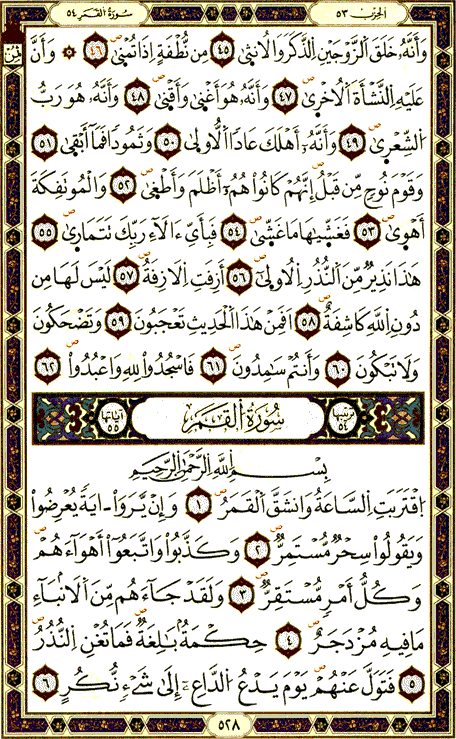 سُورَةُ القَمَر ٥٤
الحِزب ٥٣
ثمن
وَأَنَّهُۥ خَلَقَ اَلزَّوْجَيْنِ اِلذَّكَرَ وَالُانثىٰ ٤٥ مِن نُّطْفَةٍ اِذَا تُمْنىٰ ٤٦ ۞ وَأَنَّ
عَلَيْهِ اِلنَّشْأَةَ اَلُاخْرىٰ ٤٧ وَأَنَّهُۥ هُوَ أَغْنىٰ وَأَقْنىٰ ٤٨ وَأَنَّهُۥ هُوَ رَبُّ
اُلشِّعْرىٰ ٤٩ وَأَنَّهُۥ أَهْلَكَ عَاداً اَلُّاولىٰ ٥٠ وَثَمُوداً فَمَا أَبْقىٰ ٥١
وَقَوْمَ نُوحٍ مِّن قَبْلُ إِنَّهُمْ كَانُواْ هُمُۥ أَظْلَمَ وَأَطْغىٰ ٥٢ وَالْمُوتَفِكَةَ
أَهْوىٰ ٥٣ فَغَشّيٰهَا مَا غَشّىٰ ٥٤ فَبِأَيِّ ءَالَآءِ رَبِّكَ تَتَمَارىٰ ٥٥
هَٰذَا نَذِيرٌ مِّنَ اَلنُّذُرِ اِلُاولىٰ ٥٦ أَزِفَتِ اِلَازِفَةُ ٥٧ لَيْسَ لَهَا مِن
دُونِ اِللَّهِ كَاشِفَةٌ ٥٨ اَفَمِنْ هَٰذَا اَلْحَدِيثِ تَعْجَبُونَ ٥٩ وَتَضْحَكُونَ
وَلَا تَبْكُونَ ٦٠ وَأَنتُمْ سَٰمِدُونَ ٦١ فَاسْجُدُواْ لِلهِ وَاعْبُدُواْ ٦٢
ترتيبها ٥٤ سُورَةُ اَلْقَمَرِ آياتها ٥٥
بِسْمِ اِللَّهِ اِلرَّحْمَٰنِ اِلرَّحِيمِ
اِقْتَرَبَتِ اِلسَّاعَةُ وَانشَقَّ اَلْقَمَرُ ١ وَإِنْ يَّرَوْاْ ءَايَةً يُعْرِضُواْ
وَيَقُولُواْ سِحْرٌ مُّسْتَمِرٌّ ٢ وَكَذَّبُواْ وَاتَّبَعُواْ أَهْوَآءَهُمْ
وَكُلُّ أَمْرٍ مُّسْتَقِرٌّ ٣ وَلَقَدْ جَآءَهُم مِّنَ اَلَانۢبَآءِ
مَا فِيهِ مُزْدَجَرٌ ٤ حِكْمَةٌۢ بَٰلِغَةٌ فَمَا تُغْنِ اِلنُّذُرُ
٥ فَتَوَلَّ عَنْهُمْ يَوْمَ يَدْعُ اُلدَّاعِۦٓ إِلَىٰ شَےْءٍ نُّكُرٍ ٦
٥٢٨